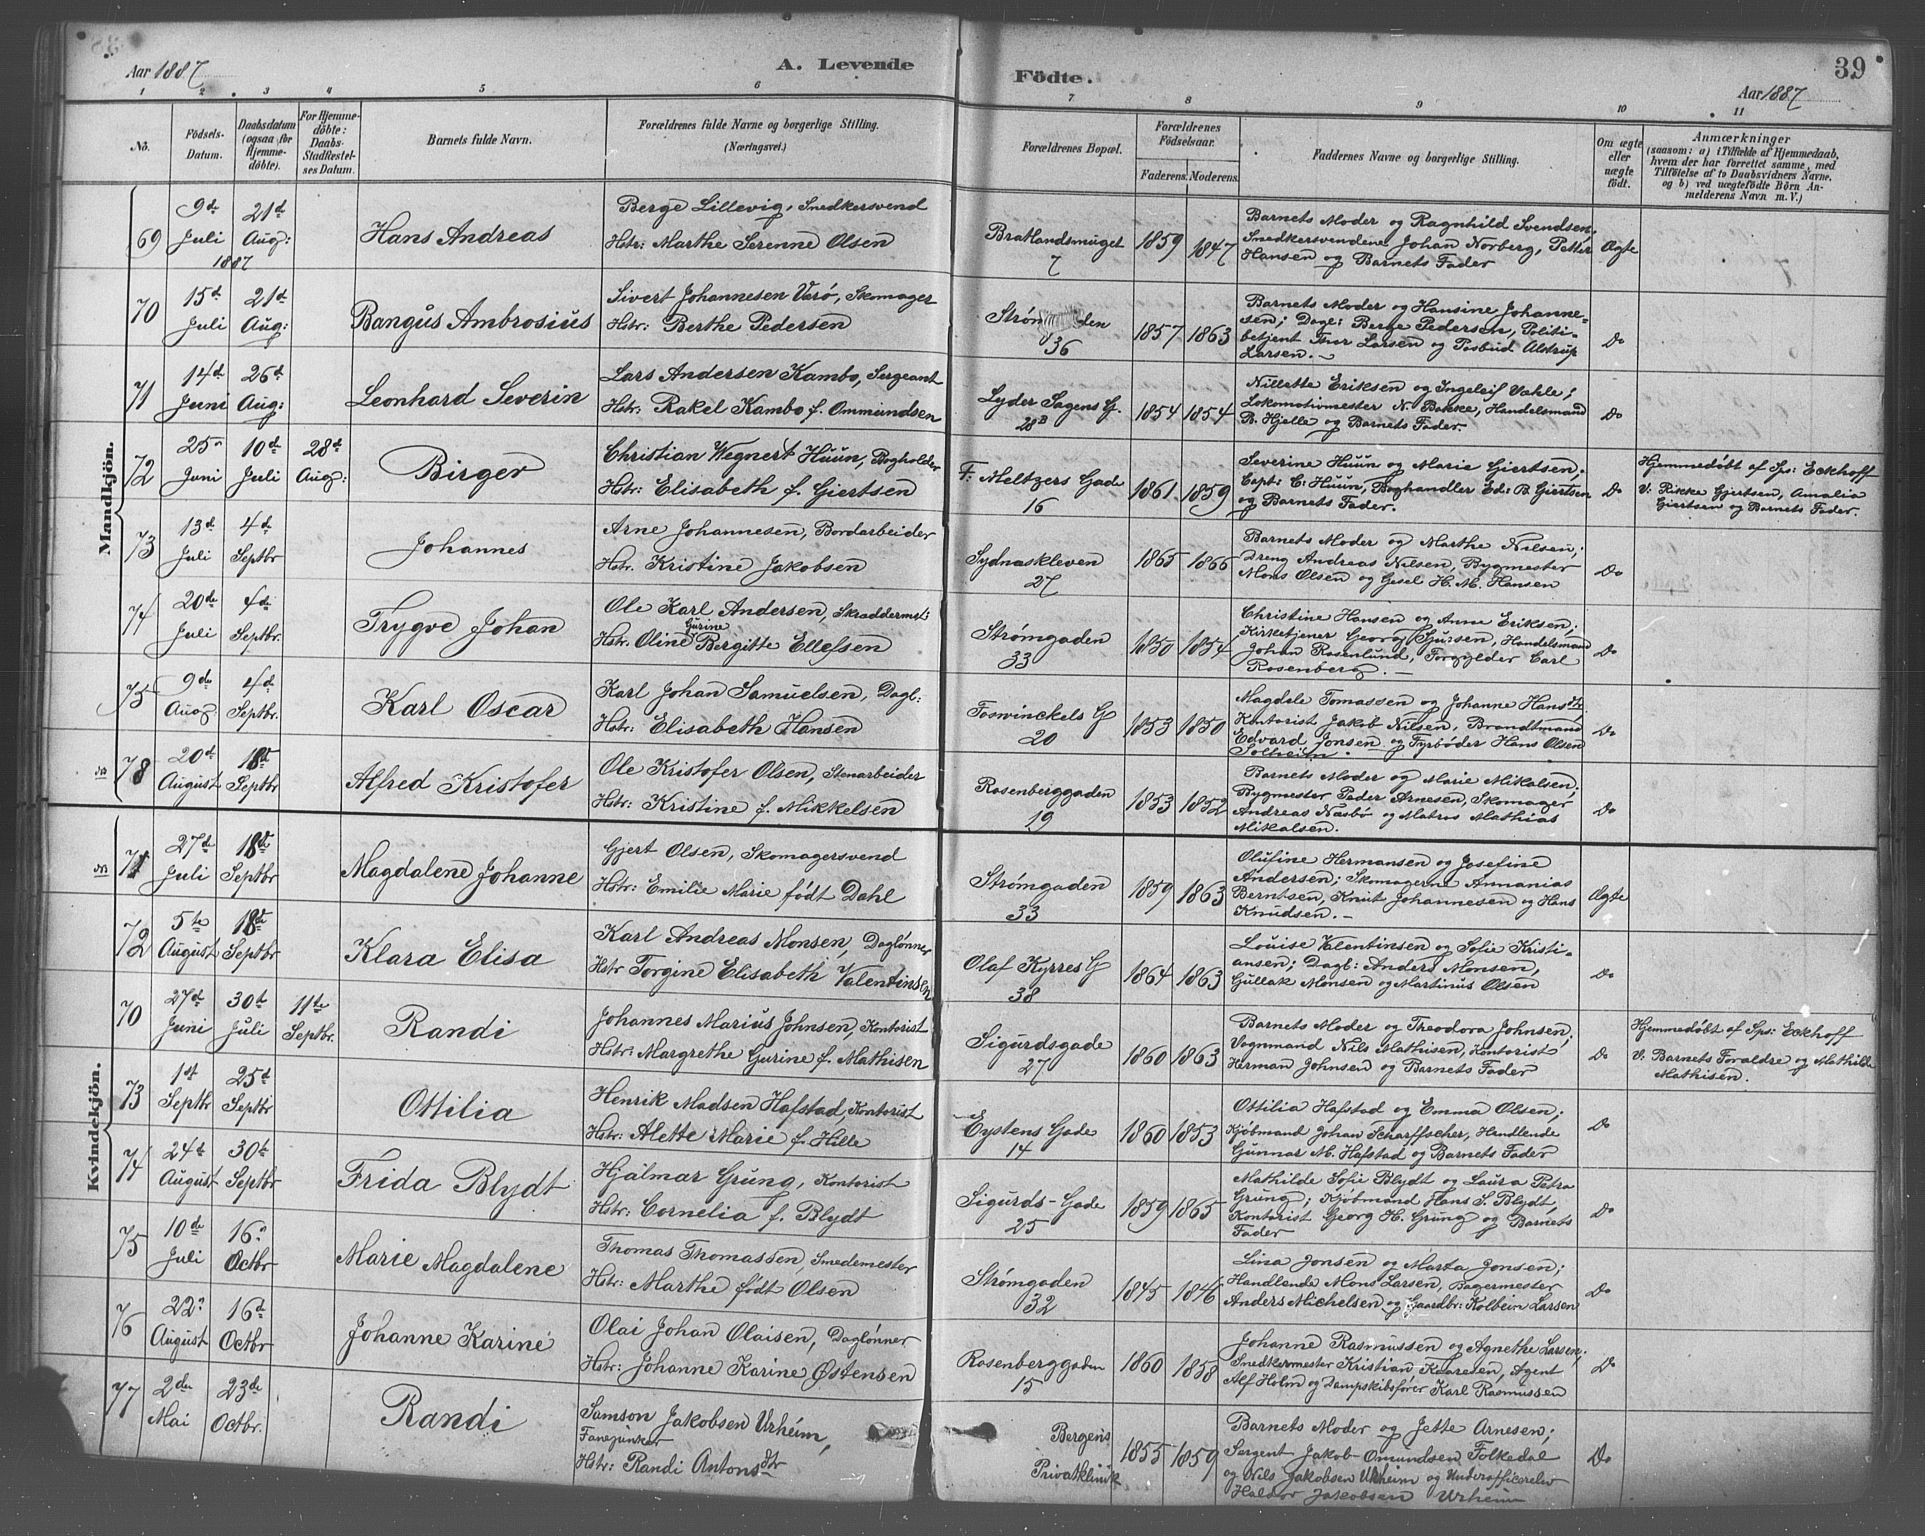 Aar 1887
A. Levende
Födte.
39
Aar 1887
1 2 3 4 5 6 7 8 9 10 11
No.
Födsels-
Datum.
Daabsdatum
(ogsaa for
Hjemme-
döbte).
For Hjemme-
döbte:
Daabs-
Stadfestel-
ses Datum.
Barnets fulde Navn.
Forældrenes fulde Navne og borgerlige Stilling.
(Næringsvei.)
Forældrenes Bopæl.
Forældrenes
Födselsaar.
Faderens. Moderens.
Faddernes Navne og borgerlige Stilling.
Om ægte
eller
uægte
födt.
Anmærkninger
(saasom: a) i Tilfælde af Hjemmedaab,
hvem der har forrettet samme, med
Tilföielse af to Daabsvidners Navne,
og b) ved uægtefödte Börn An-
melderens Navn m. V.)
Mandkjön.
69
9de
Juli
1887
21de
Aug:
Hans Andreas
Berge Lillevig, Snedkersvend
Hstr: Marthe Serenne Olsen
Bratlandsmuget
7
1859
1847
Barnets Moder og Ragnhild Svendsen,
Snedkersvendene Johan Norberg, Petter
Hansen og Barnets Fader
Ægte
70
15d
Juli
21d
Aug:
Bangüs Ambrosiüs
Sivert Johannesen Varø, Skomager
Hstr: Berthe Pedersen
Strømgaden
36
1857
1863
Barnets Moder og Hansine Johanne-
sen; Dagl: Berge Pedersen, Politi-
betjent Thor Larsen og Postbud Alstrup
Larsen. -
Do
71
14d
Juni
26d
Aug:
Leonhard Severin
Lars Andersen Kambo, Sergeant
Hstr: Rakel Kambo f. Ommundsen
Lyder Sagens G.
28B
1854
1854
Nillette Eriksen og Ingeleif Vahle;
Lokomotivmester N. Bakke, Handelsmand
B. Hjelle og Barnets Fader.
Do
72
25
Juni
10d
Juli
28d
Aug:
Birger
Christian Wegnert Huun, Bogholder
Hstr: Elisabeth f. Giertsen
F: Meltzers Gade
16
1861
1859
Severine Huun og Marie Giertsen;
Capt: C: Huun, Boghandler Ed: B. Giertsen
og Barnets Fader.
Do
Hjemmedøbt af Sps: Eckhoff
V: Rikke Gjertsen, Amalia
Giertsen og Barnets Fader.
73
13d
Juli
4d
Septbr
Johannes
Arne Johannesen, Bordarbeider
Hstr. Kristine Jakobsen
Sydnaskleven
27
1865
1866
Barnets Moder og Marthe Nilsen;
Dreng Andreas Nilsen, Bygmester
Mons Olsen og Gesel H. M. Hansen
Do
74
20de
Juli
4de
Septbr.
Trygve Johan
Ole Karl Andersen, Skraddermst:
Gurine
Hstr. Oline Bergitte Ellefsen
Strømgaden
33
1850
1854
Christine Hansen og Anne Eriksen;
Kirketjener Georg Sjursen, Handelsmand
Johan Rosenlund, Forgylder Carl
Rosenberg. -
Do
75
9de
Aug:
4d
Septbr.
Karl Oscar
Karl Johan Samuelsen, Dagl:
Hstr: Elisabeth Hansen
Foswinckels G
20
1853
1850
Magdele Tomassen og Johanne Hansdtr,
Kontorist Jakob Nilsen, Brandtmand
Edvard Jonsen og Fyrbøder Hans Olsen
Solheim.
Do
78
20d
August
18de
Septbr
Alfred Kristofer
Ole Kristofer Olsen, Stenarbeider
Hstr: Kristine f. Mikkelsen
Rosenberggaden
19
1853
1852
Barnets Moder og Marie Mikalsen;
Bygmester Peder Arnesen, Skomager
Andreas Næsbø og Matros Mathias
Mikalsen.
Do
Kvindekjön.
71
27d
Juli
18de
Septbr
Magdalene Johanne
Gjert Olsen, Skomagersvend
Hstr: Emilie Marie født Dahl
Strømgaden
33
1859
1863
Olufine Hermansen og Josefine
Andersen; Skomagerne Annanias
Berntsen, Knut Johannesen og Hans
Knudsen. -
Ægte
72
5te
August
18de
Septbr
Klara Elisa
Karl Andreas Monsen, Daglønner
Hstr Torgine Elisabeth Valentinsen
Olaf Kyrres G
38
1864
1863
Louise Valentinsen og Sofie Kristi-
ansen; Dagl: Anders Monsen,
Gullak Monsen og Martinus Olsen
Do
70
27d
Juni
30t
Juli
11te
Septbr.
Randi
Johannes Marius Johnsen, Kontorist
Hstr: Margrethe Gurine f. Mathisen
Sigurdsgade
27
1860
1863
Barnets Moder og Theodora Johnsen;
Vognmand Nils Mathisen, Kontorist
Herman Johnsen og Barnets Fader
Do
Hjemmedøbt af Sps: Eckhoff
V: Barnets Foraldre og Mathilde
Mathisen.
73
1st
Septbr
25d
Septbr
Ottilia
Henrik Madsen Hafstad, Kontorist
Hstr: Alette Marie f. Hille
Eystens Gade
14
1860
1853
Ottilia Hafstad og Emma Olsen;
Kjøbmand Johan Scharffscher, Handlende
Gunnar M. Hafstad og Barnets Fader
Do
74
24d
August
30t
Septbr
Frida Blydt
Hjalmar Grung, Kontorist
Hstr. Cornelia f. Blydt
Sigurds-Gade
25
1859
1865
Mathilde Sofie Blydt og Laura Petra
Grung; Kjøbmand Hans S. Blydt,
Kontorist Georg H. Grung og Barnets
Fader
Do
75
10de
Juli
16
Octbr
Marie Magdalene
Thomas Thomassen, Smedemester
Hstr: Marthe født Olsen
Strømgaden
32
1845
1846
Lina Jonsen og Marta Jonsen;
Handlende Mons Larsen, Bagermester
Anders Michelsen og Gaardbr: Kolbein Larsen
Do
76
22
August
16d
Octbr
Johanne Karine
Olai Johan Olaisen, Daglønner
Hstr: Johanne Karine Østensen
Rosenberggaden
15
1860
1858
Johanne Rasmussen og Agnethe Larsen;
Snedkermester Kristian Kaaresen, Agent
Alf Holm og Dampskibsfører Karl Rasmussen
Do
77
2den
Mai
23de
Octbr.
Randi
Samson Jakobsen Urheim,
Fanejunker
Hstr: Randi Antonsdtr
Bergens
Privatklinik
1855
1859
Barnets Moder og Jette Arnesen;
Sergent Jakob Omundsen Folkedal
og Nils Jakobsen Urheim og Underofficerelev
Haldor Jakobsen Urheim
Do